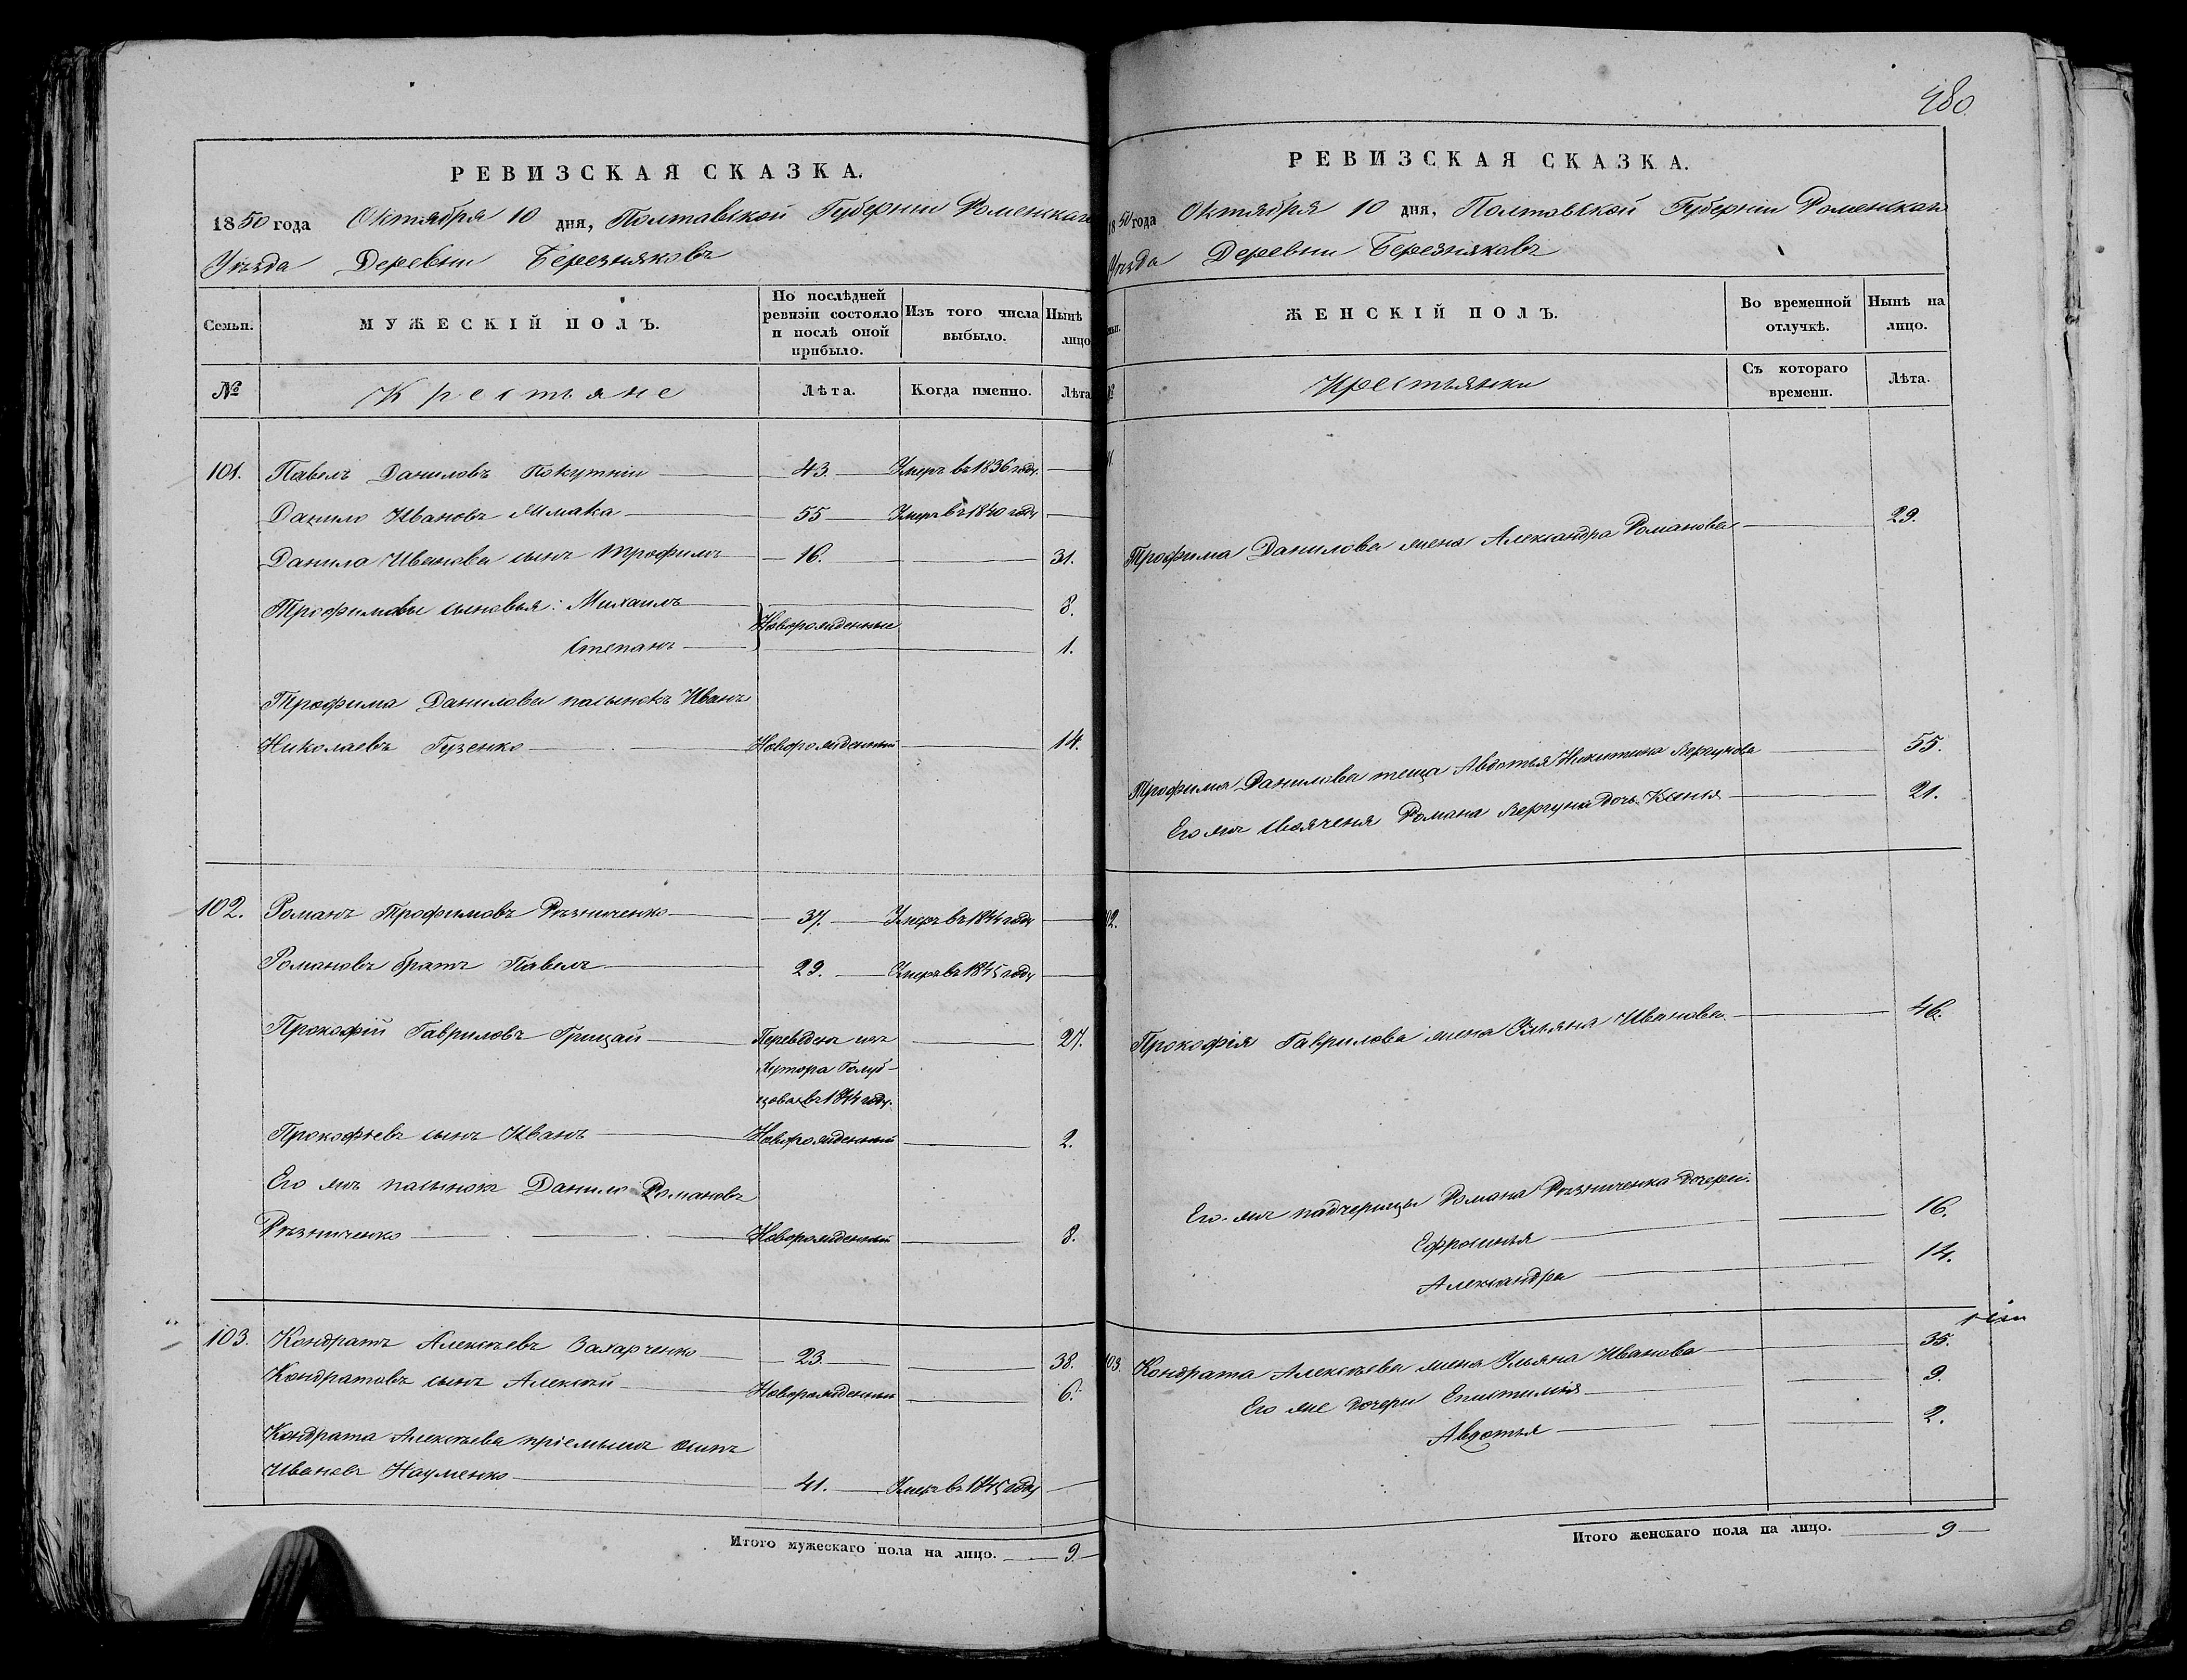 РЕВИЗСКАЯ СКАЗКА.
1850 года Октября 10 дня, Полтавской Губернии Роменскаго
Уѣзда Деревни Березняковъ
Семьи.
МУЖЕСКІЙ ПОЛЪ.
По послѣдней ревизіи состояло и послѣ оной прибыло.
Изъ того числа выбыло.
Нынѣ лицо
№
Крестьяне
Лѣта.
Когда именно.
Лѣта
101. Павелъ Даниловъ Покутній 43. Умеръ въ 1836 году.
Данило Ивановъ 55 Умеръ въ 1840 году
Данила Иванова сынъ Трофимъ 16. 31.
Трофимовы сыновья: Михаилъ 8.
Новорожденные
Степанъ 1.
Трофима Данилова пасынокъ Иванъ
Николаевъ Гузенко Новорожденный 14.
102. Романъ Трофимовъ Рѣзниченко 37. Умеръ въ 1844 году
Романовъ братъ Павелъ 29. Умеръ въ 1845 году
Прокофій Гавриловъ Грицай Переведенъ изъ 27.
Хутора Голуб-
цова въ 1844 году.
Прокофьевъ сынъ Иванъ Новорожденный 2.
Его жъ пасынокъ Данило Романовъ
Рѣзниченко Новорожденный 8.
103. Кондратъ Алексѣевъ Захарченко 23 38.
Кондратовъ сынъ Алексѣй Новорожденный 6.
Кондрата Алексѣева пріемышъ Осипъ
Ивановъ Науменко 41. Умеръ въ 1845 году
Итого мужескаго пола на лицо. 9
480
РЕВИЗСКАЯ СКАЗКА.
1850 года Октября 10 дня, Полтавской Губерніи Роменскаго
Уѣзда Деревни Березняковъ
ЖЕНСКІЙ ПОЛЪ.
Во временной отлучкѣ.
Нынѣ на лицо.
Крестьянки
Съ котораго времени.
Лѣта.
Трофима Данилова жена Александра Романова 29.
Трофима Данилова теща Авдотья Никитина Вергунова 55.
Его жъ свояченя Романа Вергуна дочь Ксенія 21.
102.
Прокофія Гаврилова жена Ульяна Иванова 46.
Его жъ падчерицы Романа Рѣзниченка дочери:
Ефросинья 16.
Александра 14.
103. Кондрата Алексѣева жена Ульяна Иванова 35.
Его же дочери Епистимія 9.
Авдотья 2.
Итого женскаго пола на лицо. 9